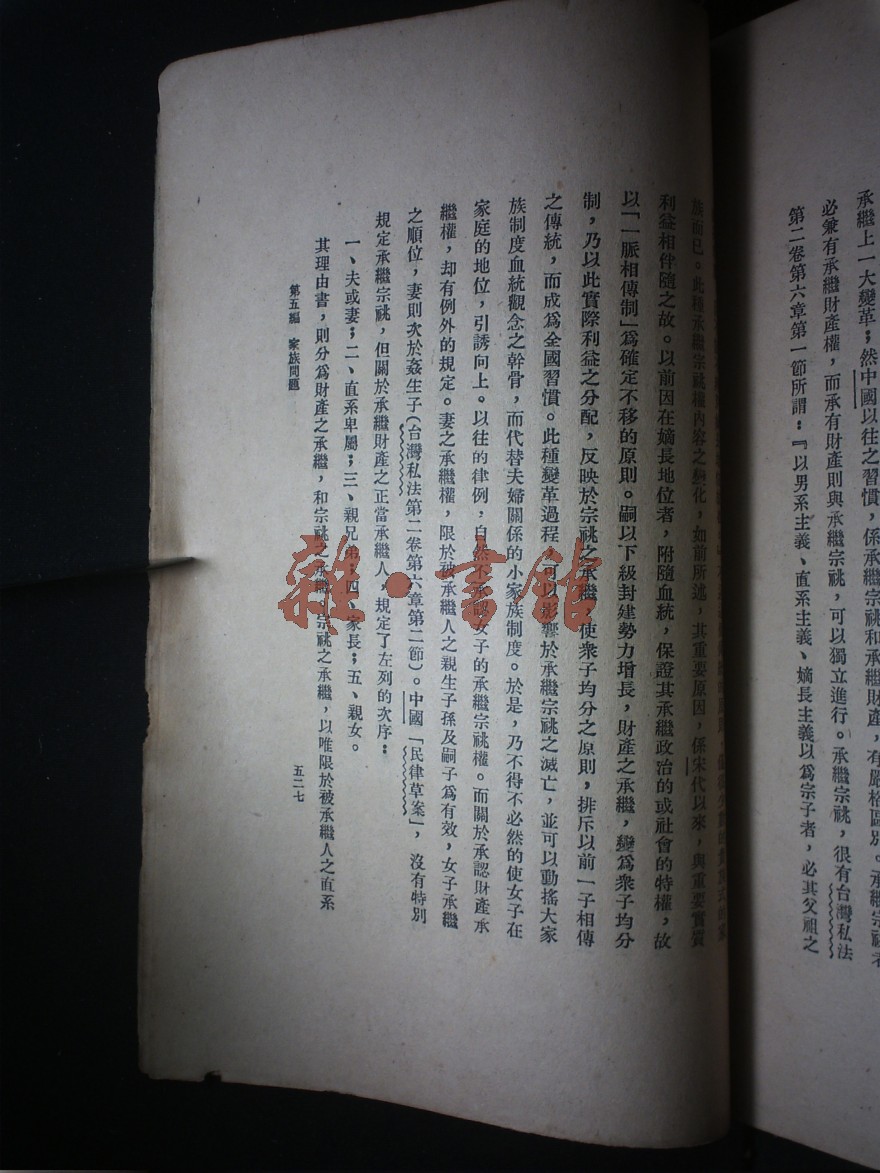 承繼上一大變革；然中國以往之習慣，係承繼宗祧和承繼財產，有嚴格區別。承繼宗祧者
必兼有承繼財產權，而承有財產則與承繼宗祧，可以獨立進行。承繼宗祧，很有台灣私法
第二卷第六章第一節所謂：『以男系主義、直系主義、嫡長主義以爲宗子者，必其父祖之
族而已。此種承繼宗祧權內容之變化，如前所述，其重要原因，係宋代以來，與重要實質
利益相伴隨之故。以前因在嫡長地位者，附隨血統，保證其承繼政治的或社會的特權，故
以「一脈相傳制」爲確定不移的原則。嗣以下級封建勢力增長，財產之承繼，變爲衆子均分
制，乃以此實際利益之分配，反映於宗祧之承繼，使衆子均分之原則，排斥以前一子相傳
之傳統，而成爲全國習慣。此種變革過程，可以影響於承繼宗祧之滅亡，並可以動搖大家
族制度血統觀念之幹骨，而代替夫婦關係的小家族制度。於是，乃不得不必然的使女子在
家庭的地位，引誘向上。以往的律例，自然不承認女子的承繼宗祧權。而關於承認財產承
繼權，却有例外的規定。妻之承繼權，限於被承繼人之親生子孫及嗣子爲有效，女子承繼
之順位，妻則次於姦生子（台灣私法第二卷第六章第二節）。中國「民律草案」，沒有特別
規定承繼宗祧，但關於承繼財產之正當承繼人，規定了左列的次序：
一、夫或妻；二、直系卑屬；三、親兄弟；四、家長；五、親女。
其理由書，則分爲財產之承繼，和宗祧之承繼，宗祧之承繼，以唯限於被承繼人之直系
第五編 家族問題
五二七
雜·書館